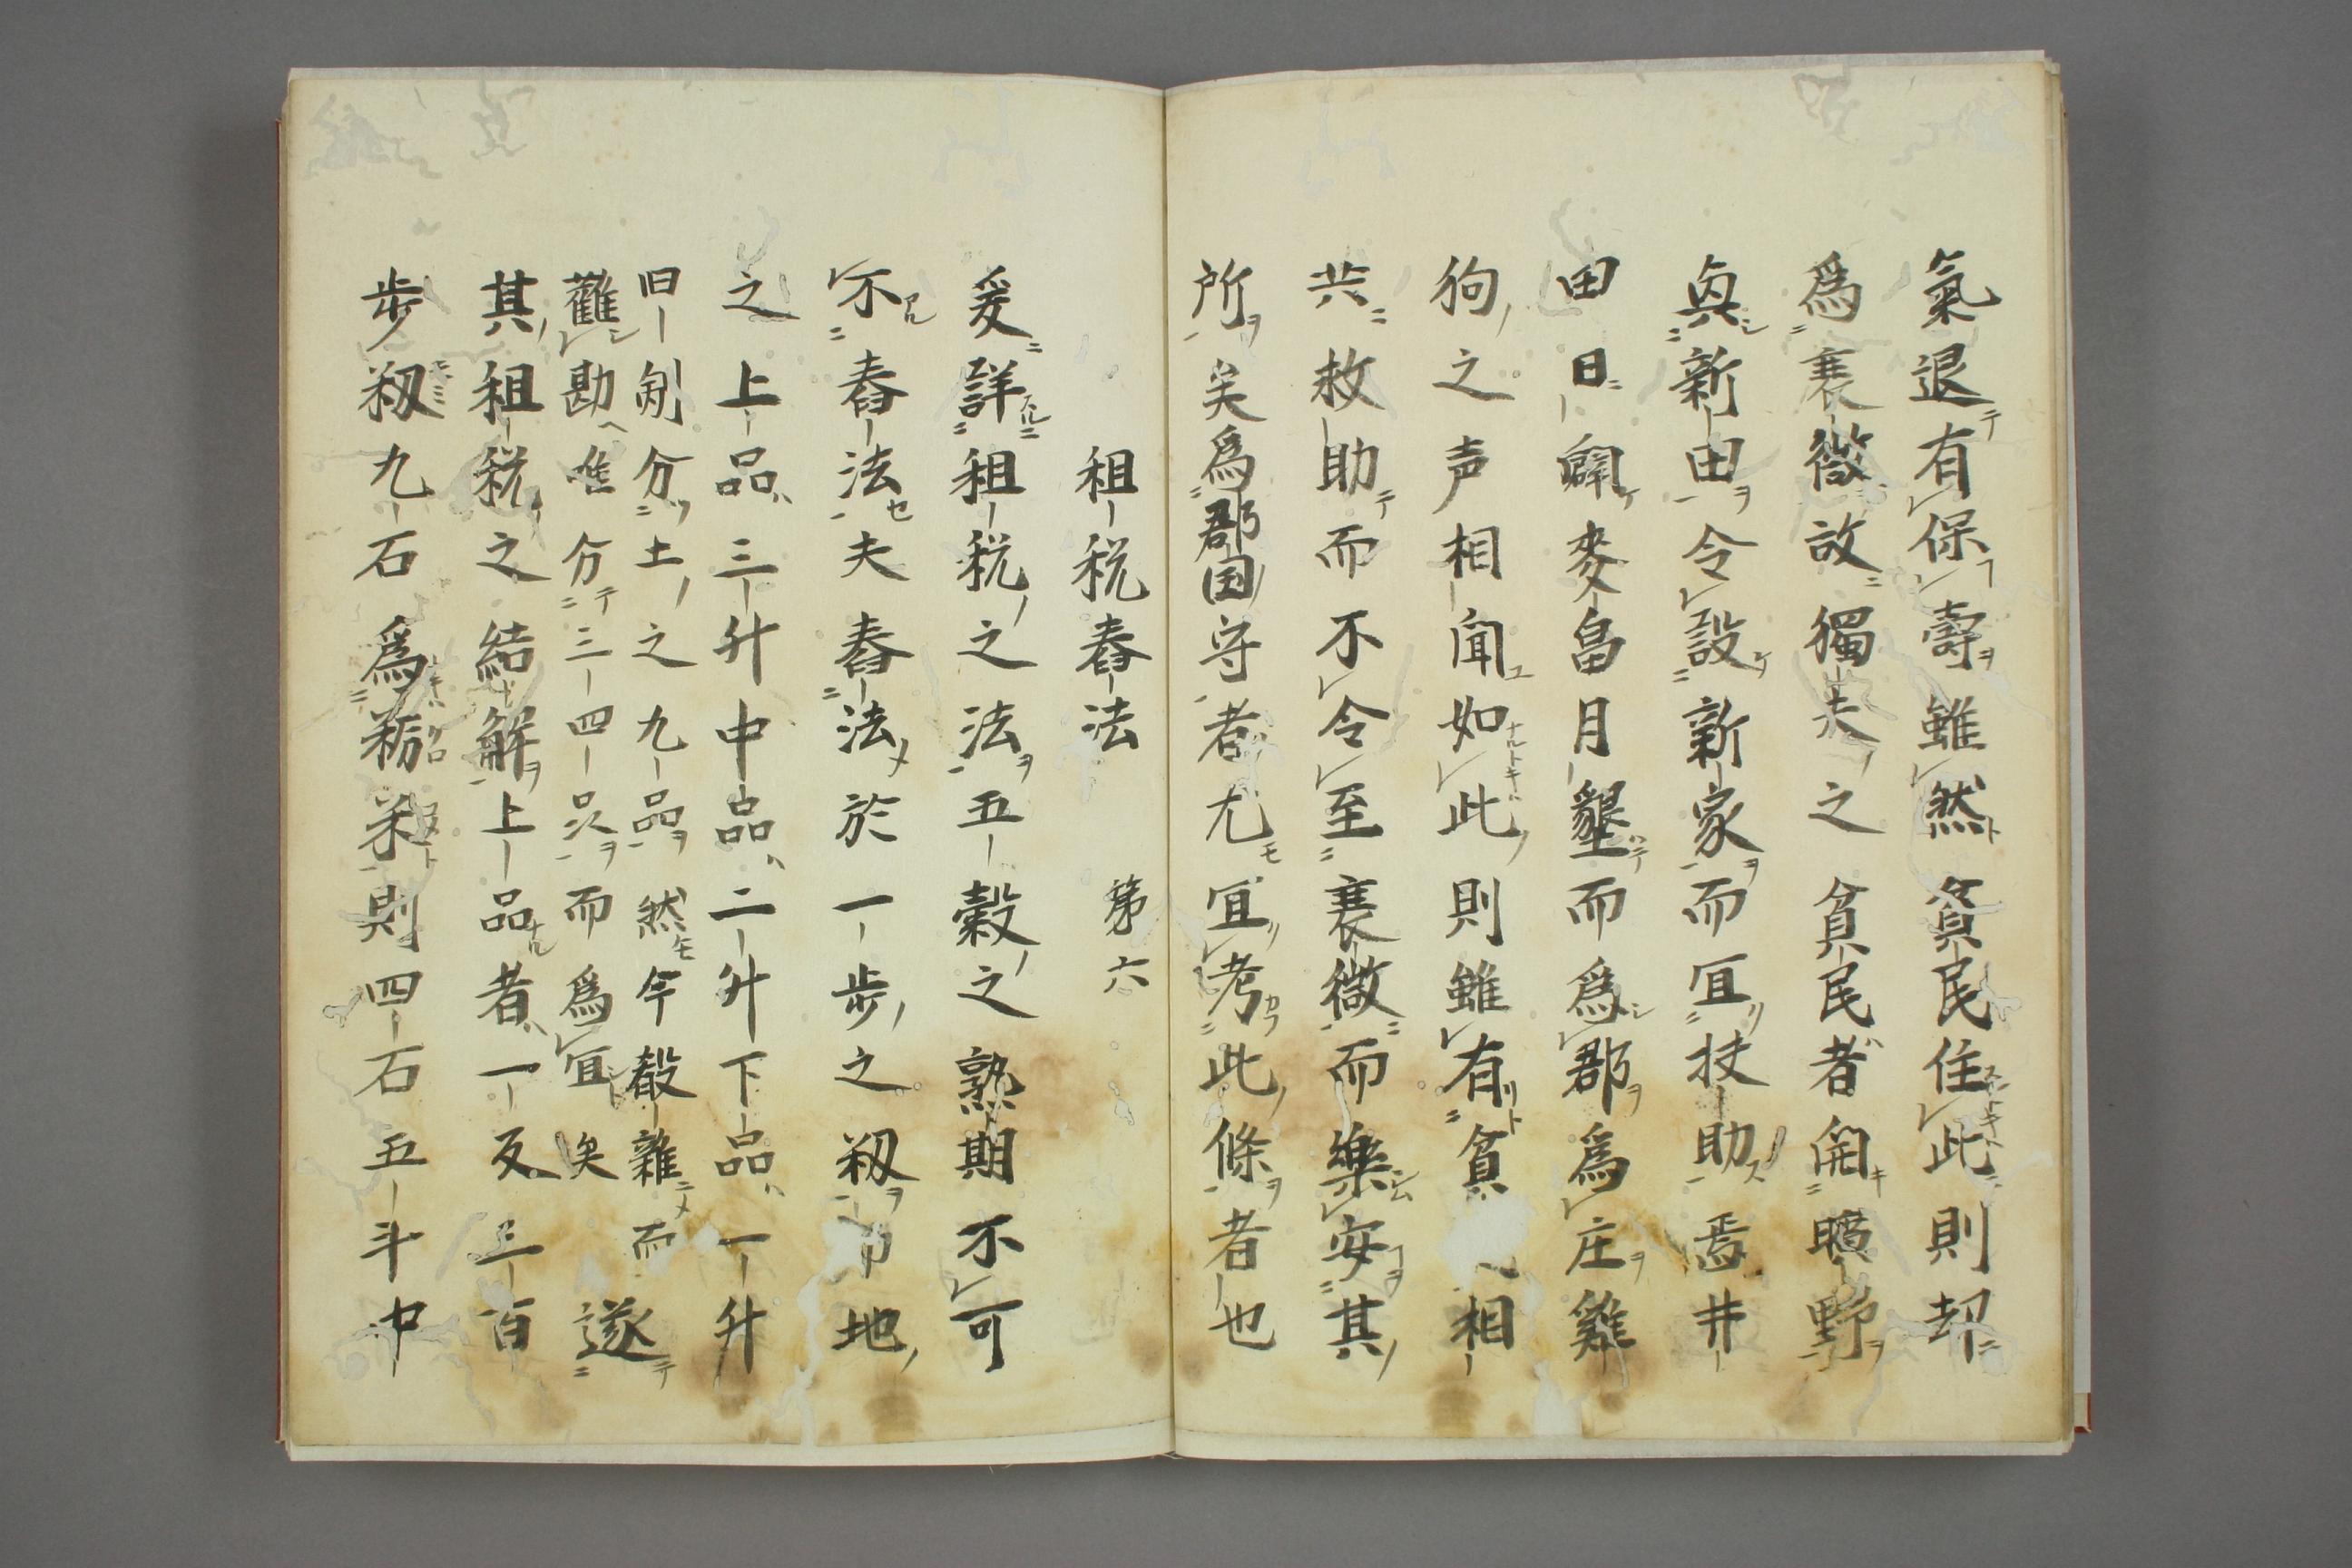 氣退有保壽雖然貧民住此則却
爲衰微故獨夫之貧民者開曠野
興新田令設新家而宜扶助焉井
田日闢麥畠月墾而爲郡爲庄雞
狗之声相聞如此則雖有貧相
共救助而不令至衰微而樂安其
所矣爲郡国守者尤宜考此條者也
租税舂法 第六
爰詳租税之法五穀之熟期不可
不舂法夫舂法於一歩之籾地
之上品三升中品二升下品一升
旧制分土之九品然今都雜而
難勘唯分三四品而爲宜矣 遂
其租税之結解上品者一反三百
歩籾九石爲粝米則四石五斗中